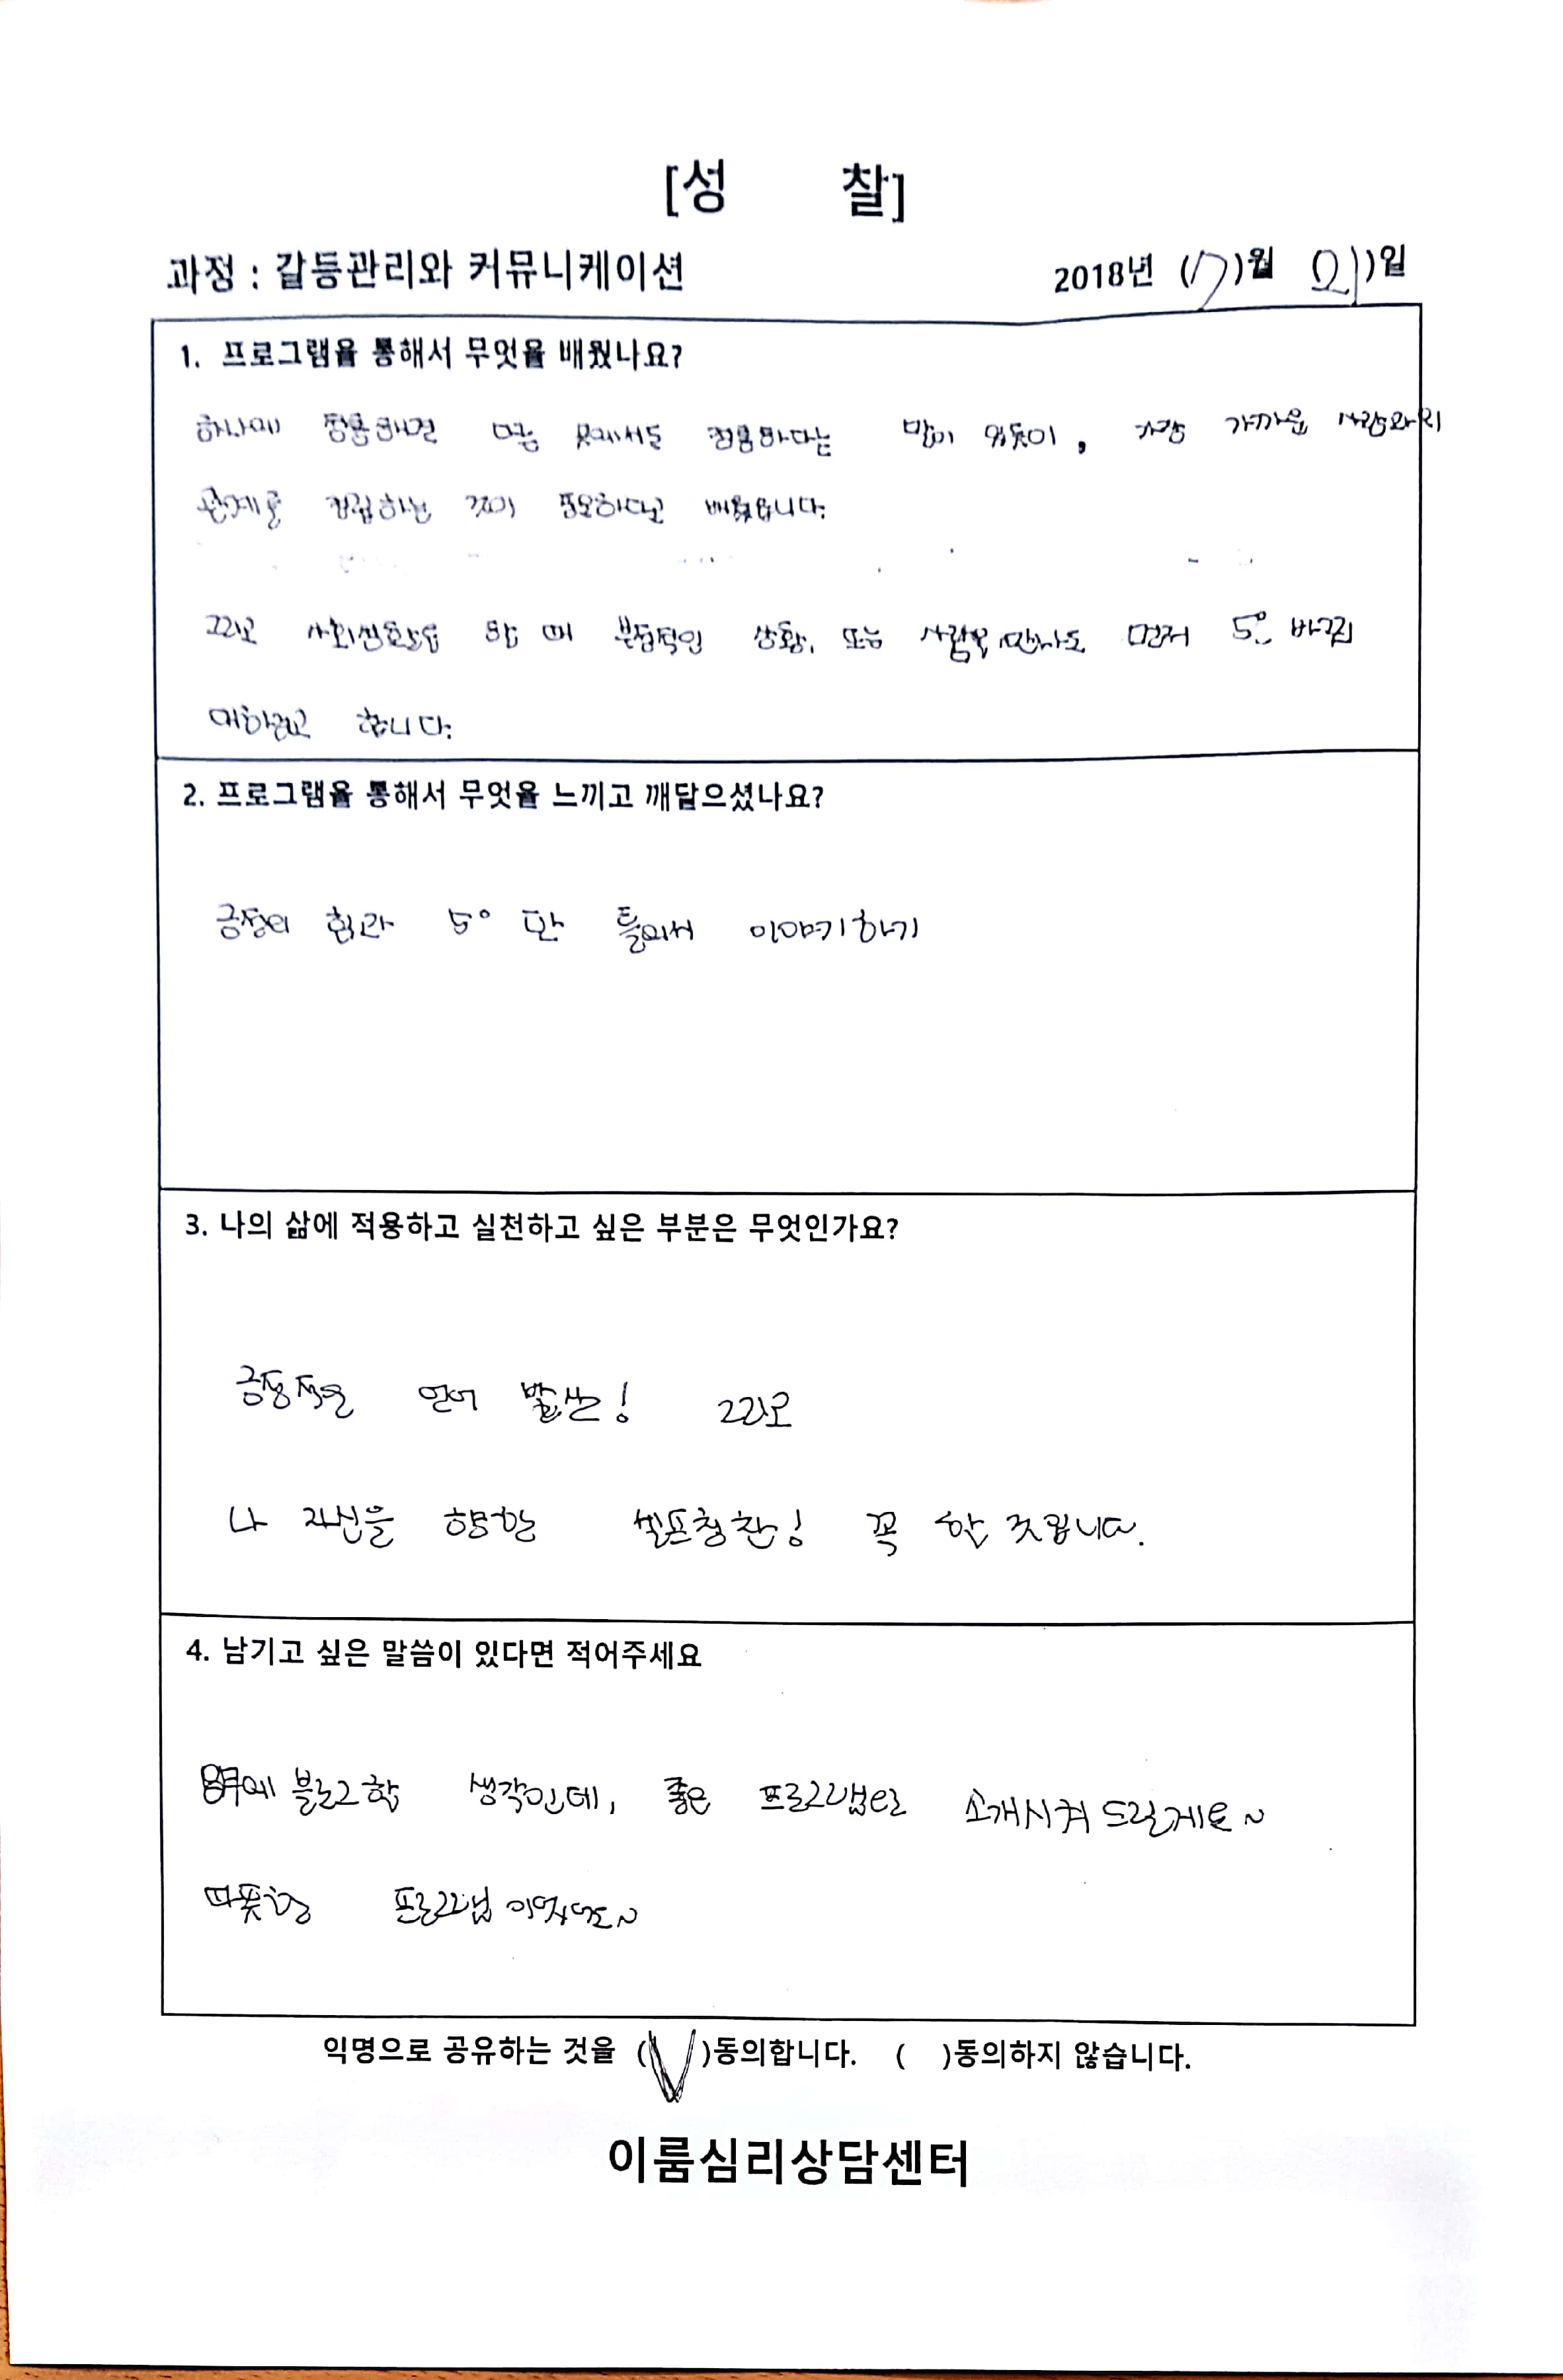 [성 찰]
과정 : 갈등관리와 커뮤니케이션 2018년 (7)월 (21)일
1. 프로그램을 통해서 무엇을 배웠나요?
하나에 정통하면 다른 것에서도 정통하다는 말이 있듯이, 가장 가까운 사람와의
관계를 정립하는 것이 중요하다고 배웠습니다.
그리고 사회생활을 할 때 부정적인 상황, 또는 사람을 만나도 먼저 5° 바뀐
대하려고 합니다.
2. 프로그램을 통해서 무엇을 느끼고 깨달으셨나요?
긍정의 힘과 5° 만 틀어서 이야기하기
3. 나의 삶에 적용하고 실천하고 싶은 부분은 무엇인가요?
긍정적은 언어 발산! 그리고
나 자신을 향한 셀프칭찬! 꼭 할 것입니다.
4. 남기고 싶은 말씀이 있다면 적어주세요
블로그할 생각인데, 좋은 프로그램으로 소개시켜 드릴게요~
따뜻한 프로그램 이었어요~
익명으로 공유하는 것을 (V)동의합니다. ( )동의하지 않습니다.
이룸심리상담센터